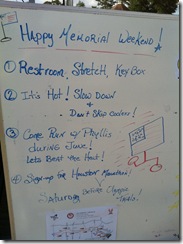 Happy Memorial Weekend!
① Restroom, Stretch, Key Box
② It's Hot! Slow Down
&
Don't Skip Coolers!
③ Come Run w/ Phyllis
during June!
Lets Beat the Heat!
④ Sign-up for Houston Marathon!
Saturday
Before Change